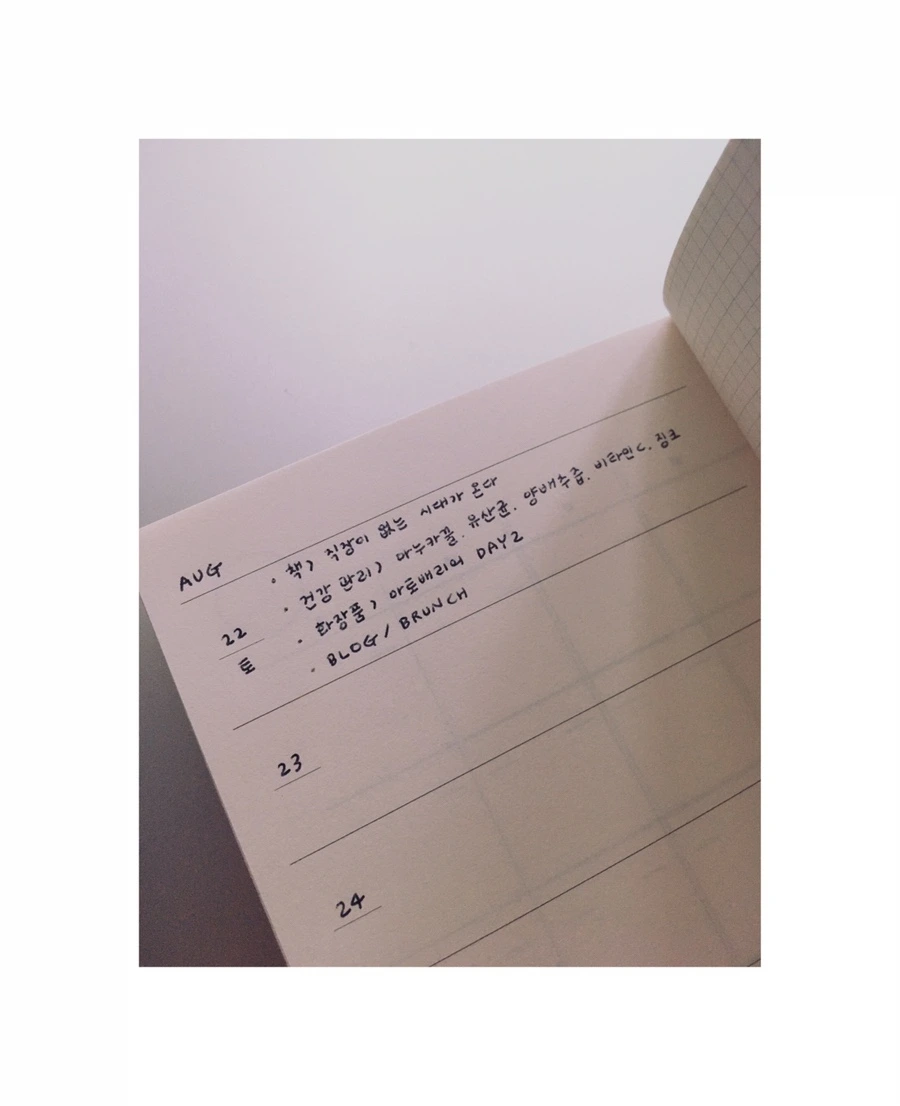 AUG
· 책> 직장이 없는 시대가 온다
· 건강 관리> 마누카꿀. 유산균. 양배추즙. 비타민C. 징크
22
· 화장품> 아토배리어 DAY2
토
· BLOG / BRUNCH
23
24